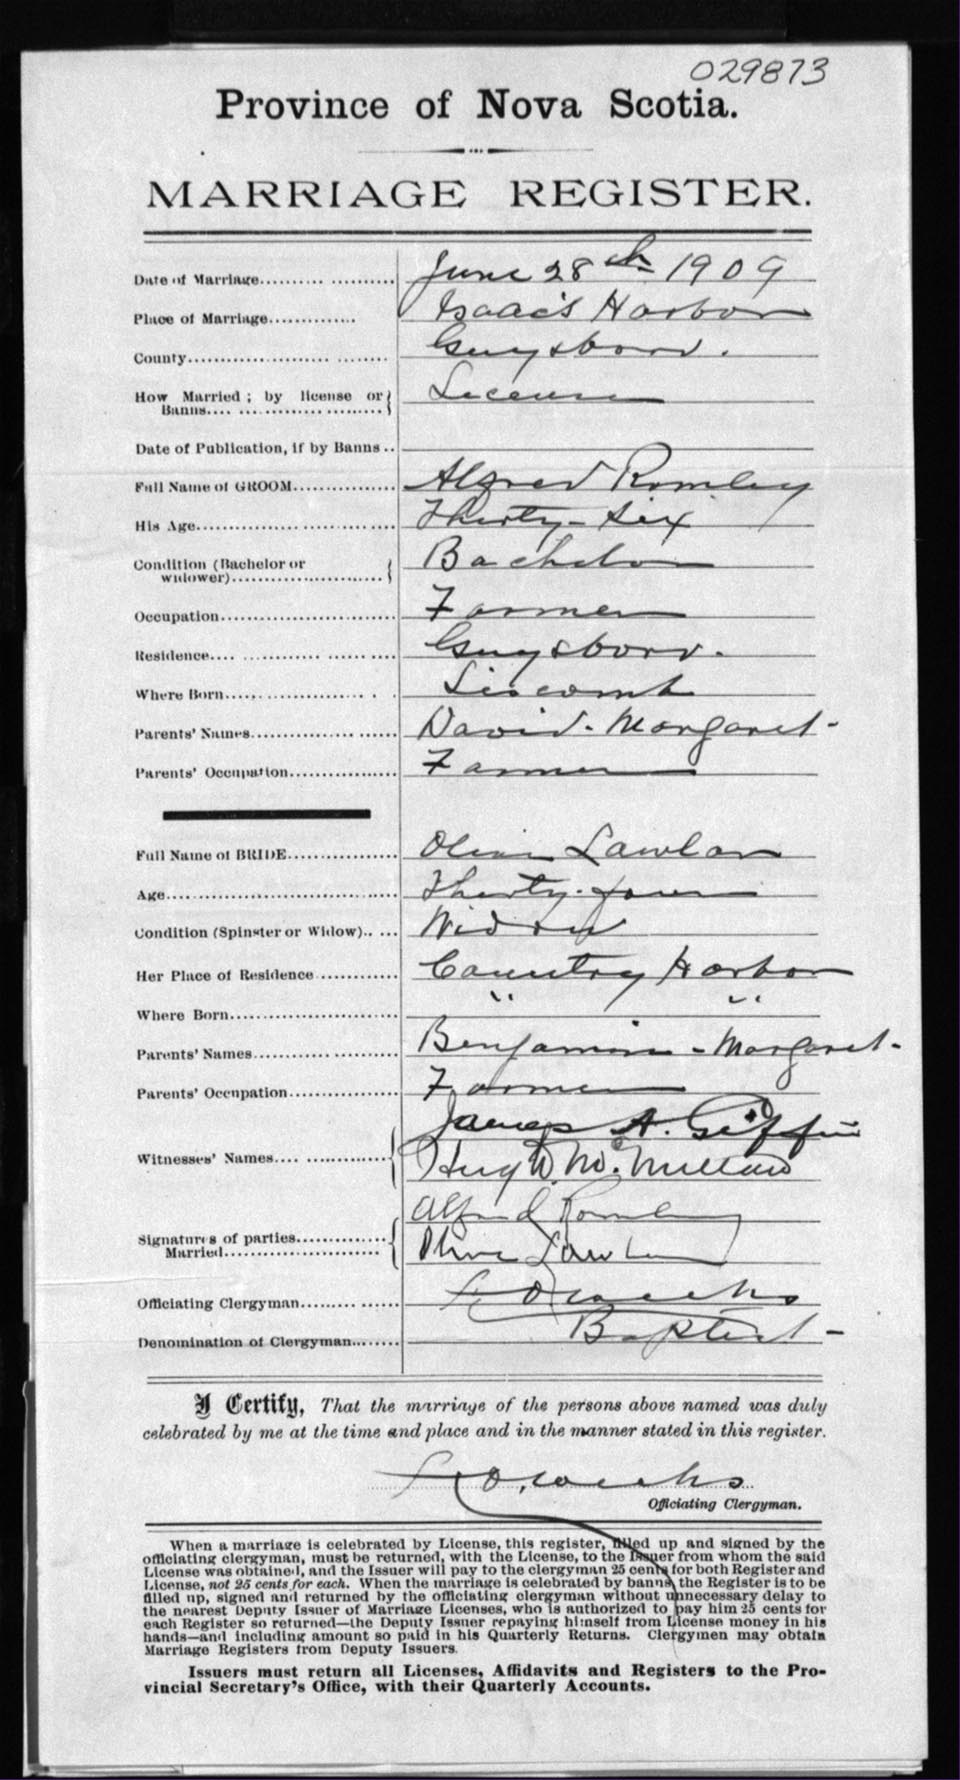 029873
Province of Nova Scotia.
MARRIAGE REGISTER.
Date of Marriage.......... .......... June 28th 1909
Place of Marriage............. Isaac's Harbor
County.................... ........ Guysboro.
How Married ; by license or License
Banns.... ...................... 
Date of Publication, if by Banns ..
Full Name of GROOM................ Alfred Romley
His Age.......................... Thirty-six
Condition (Bachelor or Bachelor
widower)........................
Occupation........................... Farmer
Residence.... ............... ........ Guysboro.
Where Born...................... . . Liscomb
Parents' Names...................... David - Margaret -
Parents' Occupation................. Farmer
Full Name of BRIDE................. Olive Lawlor
Age.................................... Thirty-four
Condition (Spinster or Widow).. ... Widow
Her Place of Residence............. Country Harbor
Where Born......................... " "
Parents' Names...................... Benjamin - Margaret -
Parents' Occupation................. Farmer
James A. Giffin
Witnesses' Names.... ............... Hugh D. McMillan
Alfred Romley
Signatures of parties............... Olive Lawlor
Married........................
Officiating Clergyman.............. Weeks
Denomination of Clergyman....... Baptist -
I Certify, That the marriage of the persons above named was duly
celebrated by me at the time and place and in the manner stated in this register.
Weeks
Officiating Clergyman.
When a marriage is celebrated by License, this register, filled up and signed by the
officiating clergyman, must be returned, with the License, to the Issuer from whom the said
License was obtained, and the Issuer will pay to the clergyman 25 cents for both Register and
License, not 25 cents for each. When the marriage is celebrated by banns, the Register is to be
filled up, signed and returned by the officiating clergyman without unnecessary delay to
the nearest Deputy Issuer of Marriage Licenses, who is authorized to pay him 25 cents for
each Register so returned—the Deputy Issuer repaying himself from License money in his
hands—and including amount so paid in his Quarterly Returns. Clergymen may obtain
Marriage Registers from Deputy Issuers.
Issuers must return all Licenses, Affidavits and Registers to the Pro-
vincial Secretary's Office, with their Quarterly Accounts.